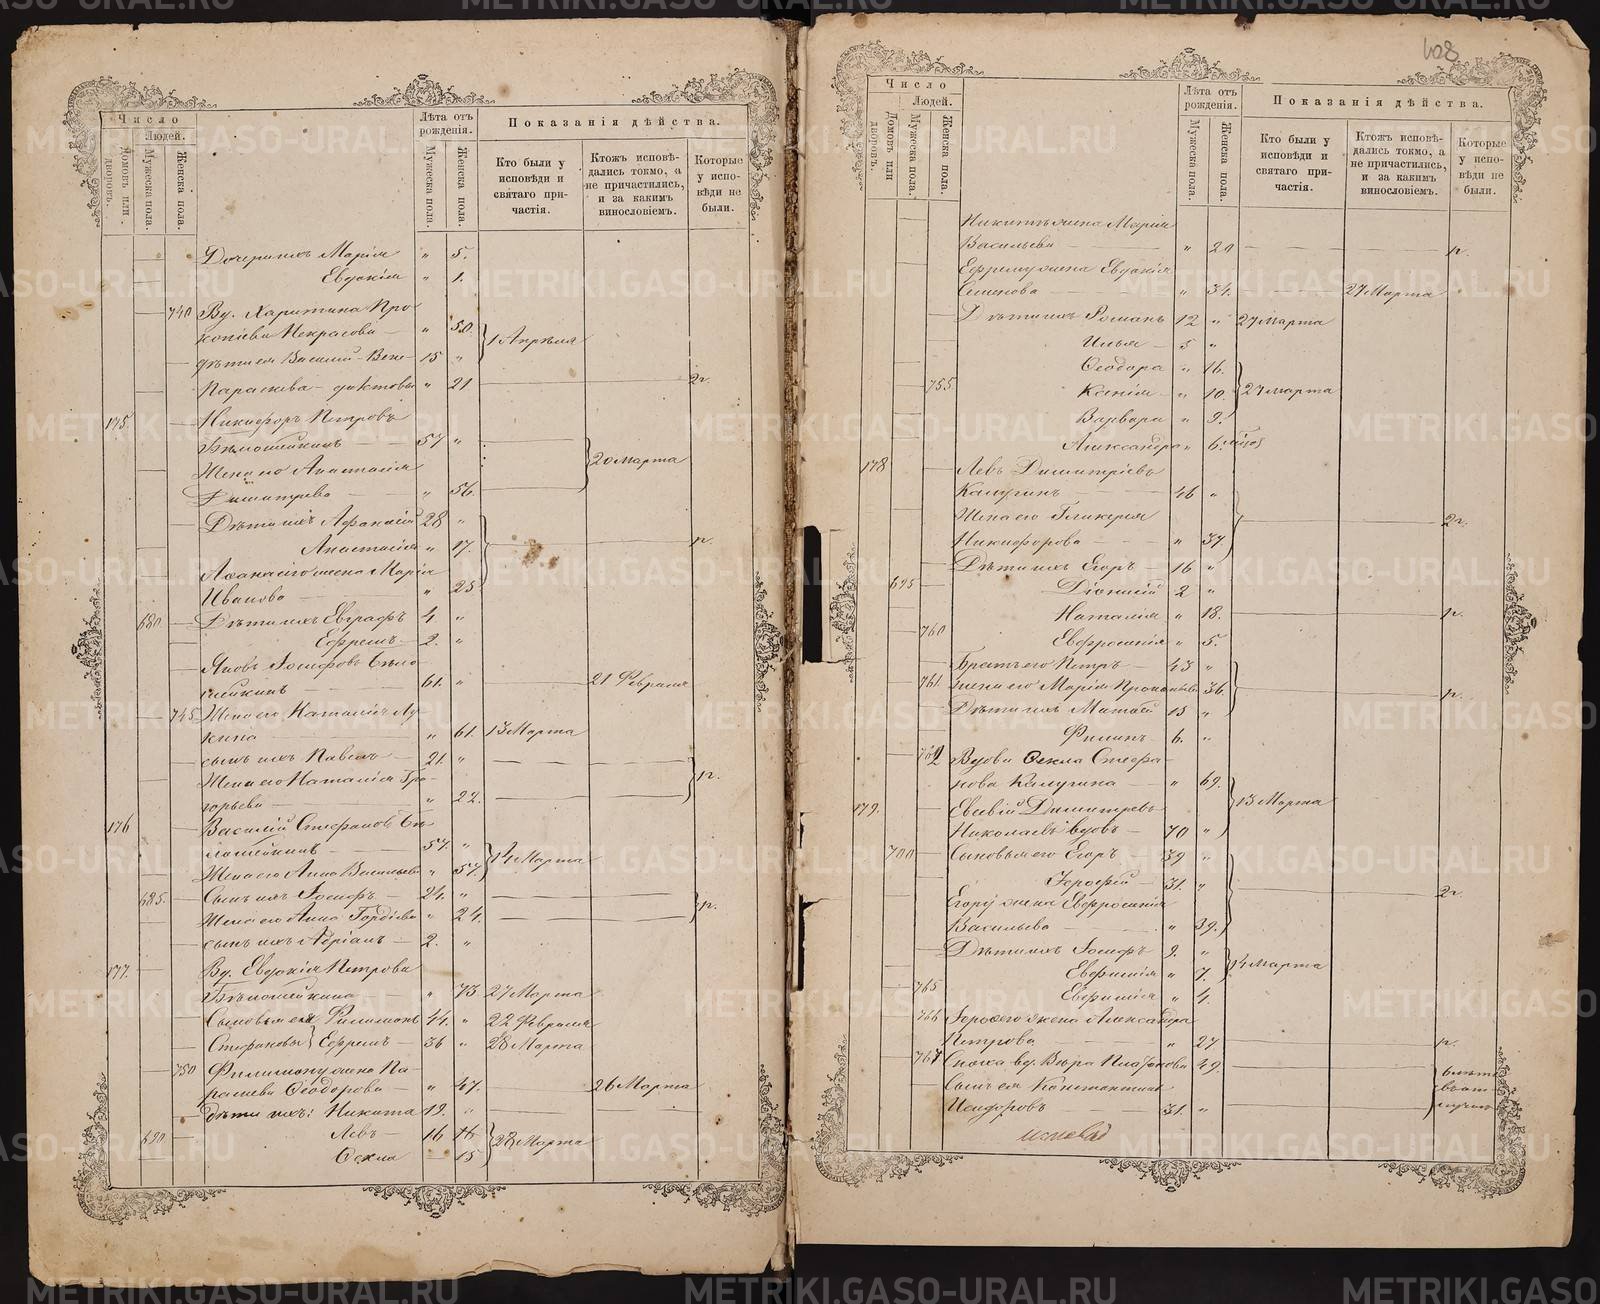 Число
Людей.
Домовъ или дворовъ.
Мужеска пола.
Женска пола.
Лѣта отъ рожденія.
Мужеска пола.
Женска пола.
Показанія дѣйства.
Кто были у исповѣди и святаго причастія.
Ктожъ исповѣдались токмо, а не причастились, и за какимъ винословіемъ.
Которые у исповѣди не были.
Дочери ихъ Марія " 5.
Евдокія " 1.
740 Вд. Харитина Про-
копіева Некрасова " 50. 1 Апрѣля
15 "
Параскева " 21
175. Никифоръ Петровъ
57 "
Жена его Анастасія 20 Марта
Димитрева " 56.
Дѣти ихъ Афанасій 28 "
Анастасія " 17.
Афанасію жена Марія
Иванова " 25
680 Дѣти ихъ Евграфъ 4. "
Ефремъ 2. "
Яковъ Іосифовъ Бѣло-
61. " 21 Февраля
745 Жена его Наталія Лу-
кина " 61. 13 Марта
сынъ ихъ Павелъ 21. "
Жена его Наталія Гри-
горьева " 22.
176 Василій Стефановъ Бѣ-
57. " 14 Марта
Жена его Анна Васильева " 57.
685. Сынъ ихъ Іосифъ 24. "
Жена его Анна Гордѣева " 24.
сынъ ихъ Адріанъ 2. "
177. Вд. Евдокія Петрова
" 73 27 Марта
Сыновья ея Филимонъ 44. " 22 Февраля
Стефановы Ефремъ 36 " 28 Марта
750 Филимону жена Па-
раскева Ѳеодорова " 47. 26 Марта
дѣти ихъ: Никита 19. "
690 Левъ 16 28 Марта
Ѳекла 15
608
Число
Людей.
Домовъ или дворовъ.
Мужеска пола.
Женска пола.
Лѣта отъ рожденія.
Мужеска пола.
Женска пола.
Показанія дѣйства.
Кто были у исповѣди и святаго причастія.
Ктожъ исповѣдались токмо, а не причастились, и за какимъ винословіемъ.
Которые у исповѣди не были.
Никитѣ жена Марія
Васильева " 20
Ефрему жена Евдокія
Семенова " 34. 27 Марта
Дѣти ихъ Романъ 12 " 27 Марта
Илья 5 "
Ѳеодора " 16.
755 Ксенія " 10. 27 Марта
Варвара " 9.
Александра " 6.
178 Левъ Димитріевъ
Калугинъ 46 "
Жена его Гликерія
Никифорова " 37
Дѣти ихъ Егоръ 16 "
695 Діонисій 2 "
Наталія " 18.
760 Евфросинія " 5.
Братъ его Петръ 43 "
761. Жена его Марія Прокопьева 36.
Дѣти ихъ 15 "
Филипъ 6. "
762 Вдова Ѳекла Стефа-
нова Калугина " 69.
179. Димитревъ 13 Марта
Николаевъ вдовъ 70 "
700 Сыновья его Егоръ 39 "
31. "
Егору жена Евфросинія
Васильева " 39.
Дѣти ихъ Іосифъ 9. "
Евфимія " 7. 14 Марта
765 Евфимія " 4.
766 жена Александра
Петрова " 27
767 Сноха вд. Вѣра Платонова 49.
Сынъ ея Константинъ
Исидоровъ 31. "
METRIKI.GASO-URAL.RU